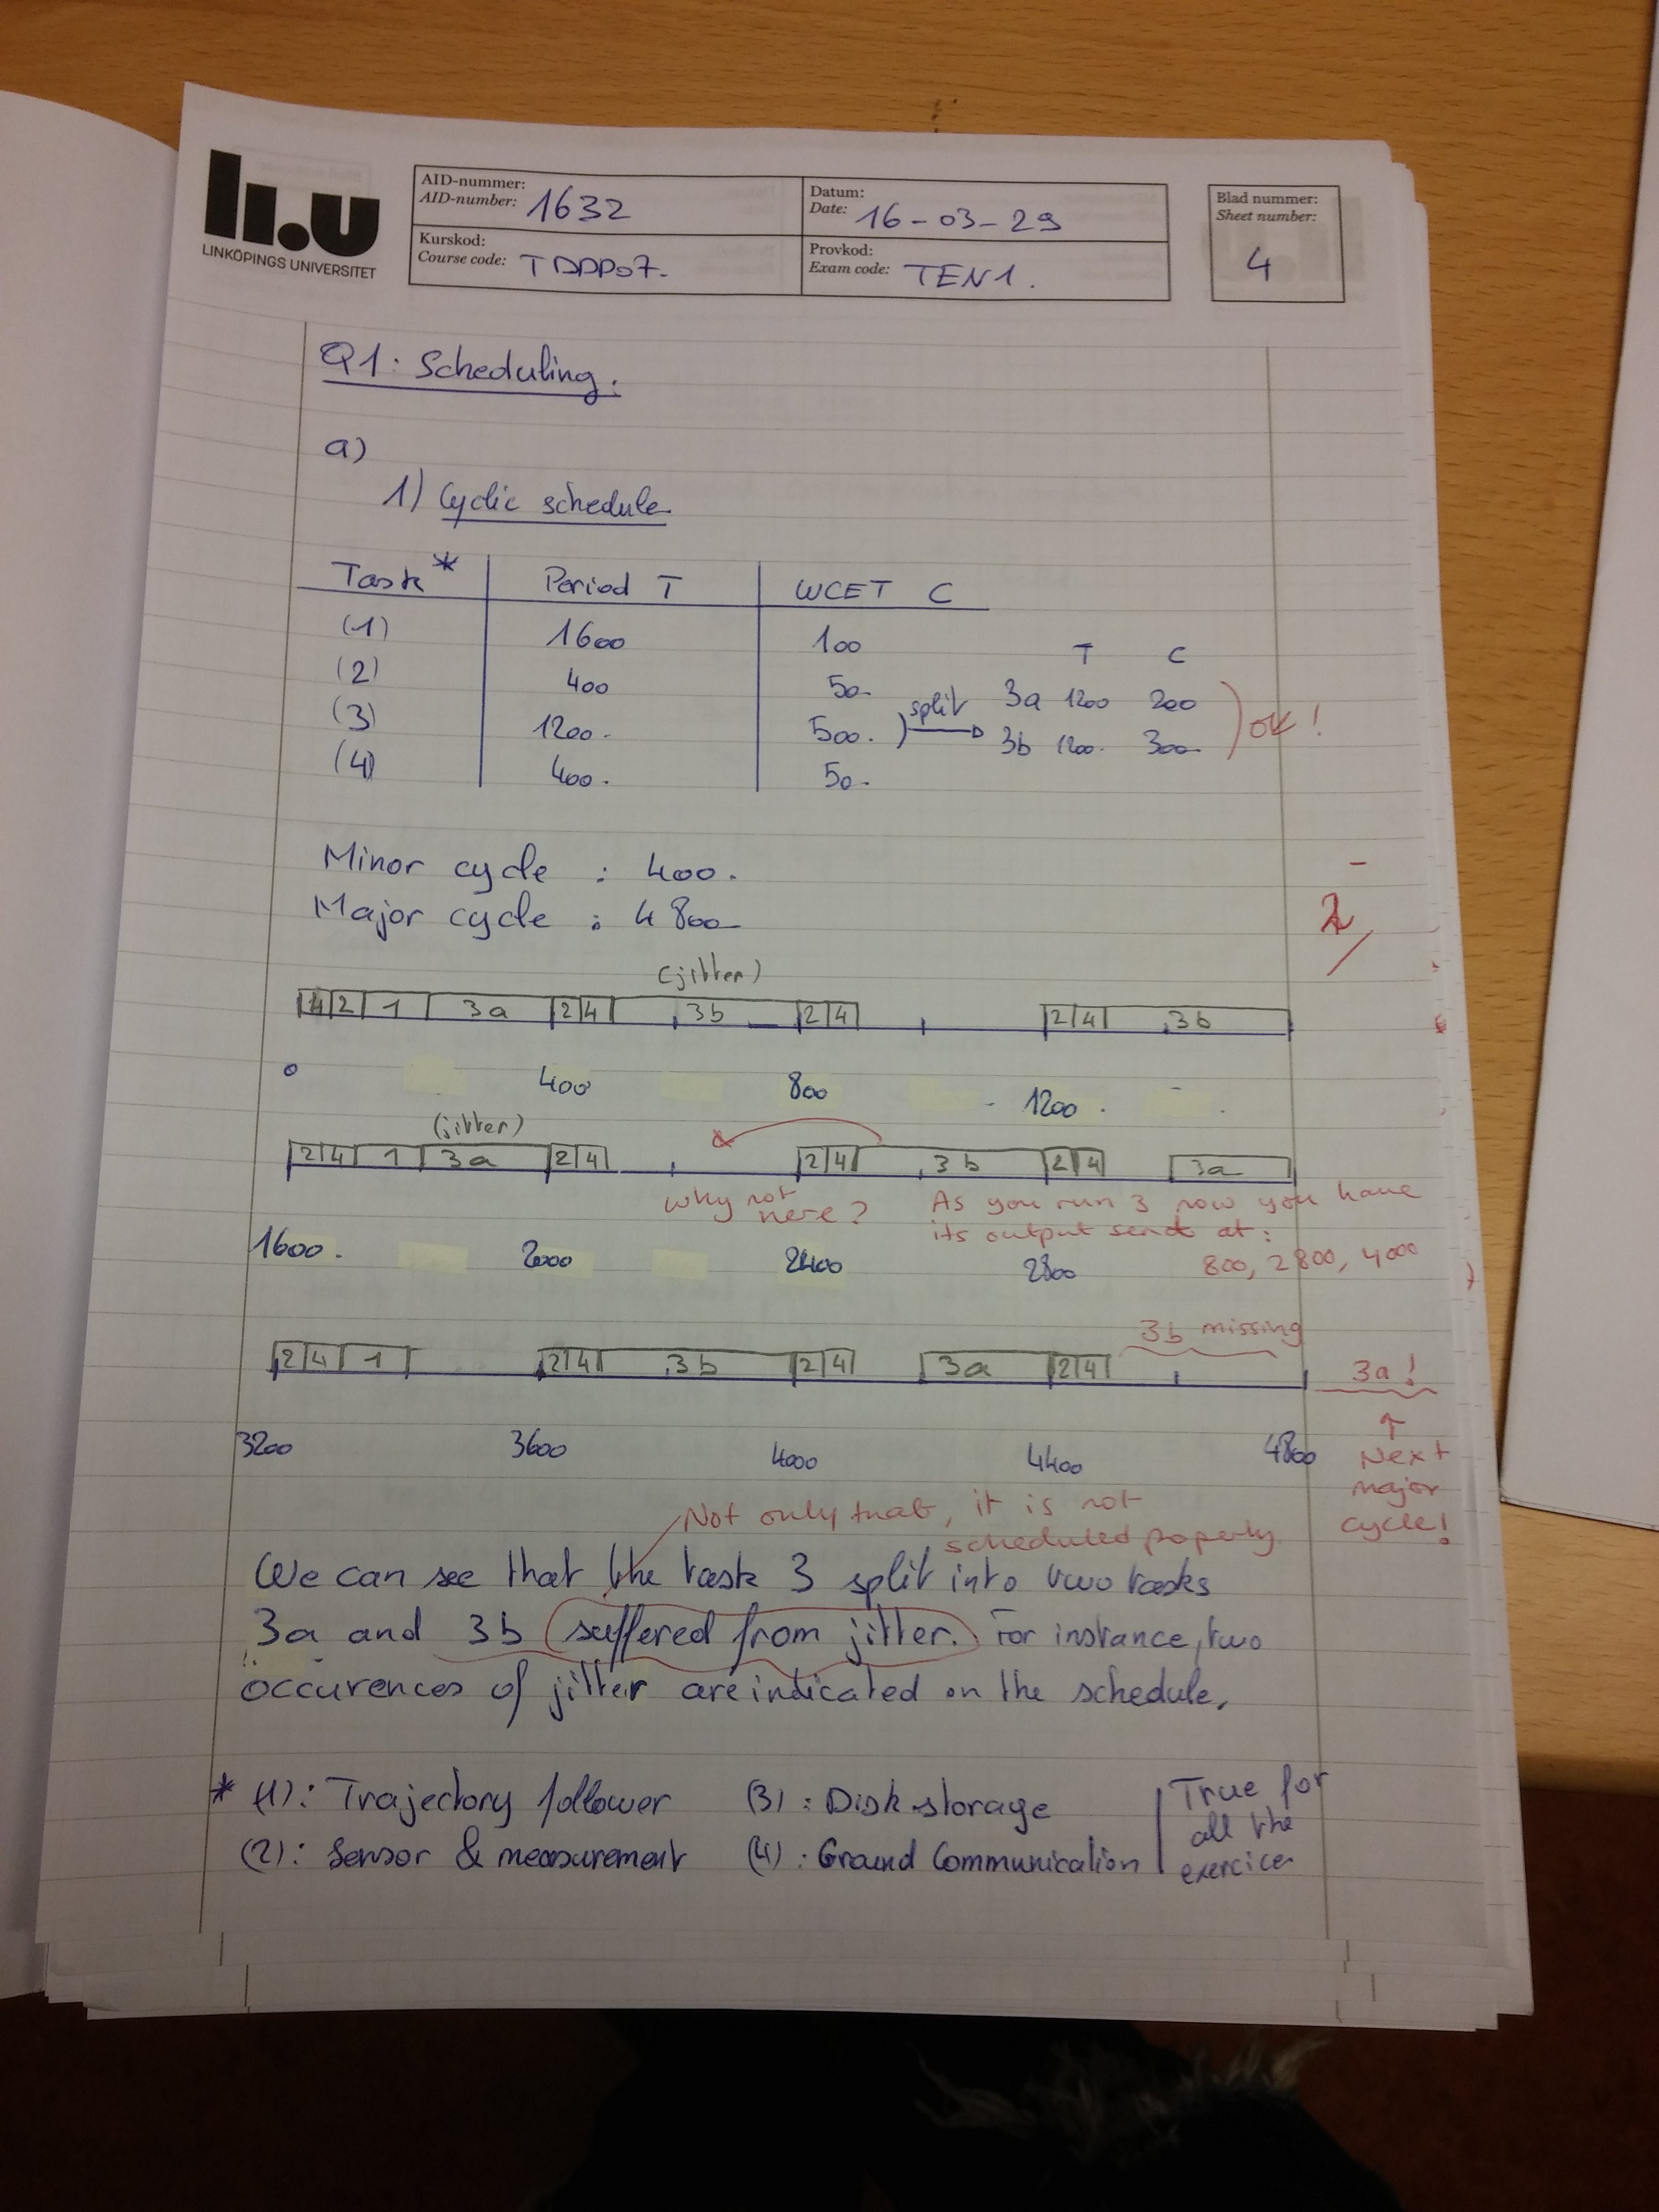 li.u
LINKÖPINGS UNIVERSITET
AID-nummer:
AID-number: 1632
Datum:
Date: 16-03-29
Kurskod:
Course code: TDDD07.
Provkod:
Exam code: TEN1.
Blad nummer:
Sheet number:
4
Q1: Scheduling.
a)
1) Cyclic schedule
Task * Period T WCET C
(1) 1600 100
T C
(2) 400 50
(3) 1200. 500. ) split 3a 1200 200
3b 1200. 300 ) OK!
(4) 400. 50
Minor cycle : 400.
Major cycle : 4800
2
(jitter)
4 2 1 3a 2 4 3b 2 4 2 4 3b
0 400 800 1200.
(jitter)
2 4 1 3a 2 4 2 4 3b 2 4 3a
Why not here?
As you run 3 now you have
its output send at:
800, 2800, 4000
1600. 2000 2400 2800
3b missing
2 4 1 2 4 3b 2 4 3a 2 4
3a!
↑
Next
major
cycle!
3200 3600 4000 4400 4800
Not only that, it is not
scheduled properly
We can see that the task 3 split into two tasks
3a and 3b suffered from jitter. For instance, two
occurences of jitter are indicated on the schedule.
* (1): Trajectory follower (3): Disk storage
(2): Sensor & measurement (4): Ground Communication
True for
all the
exercice